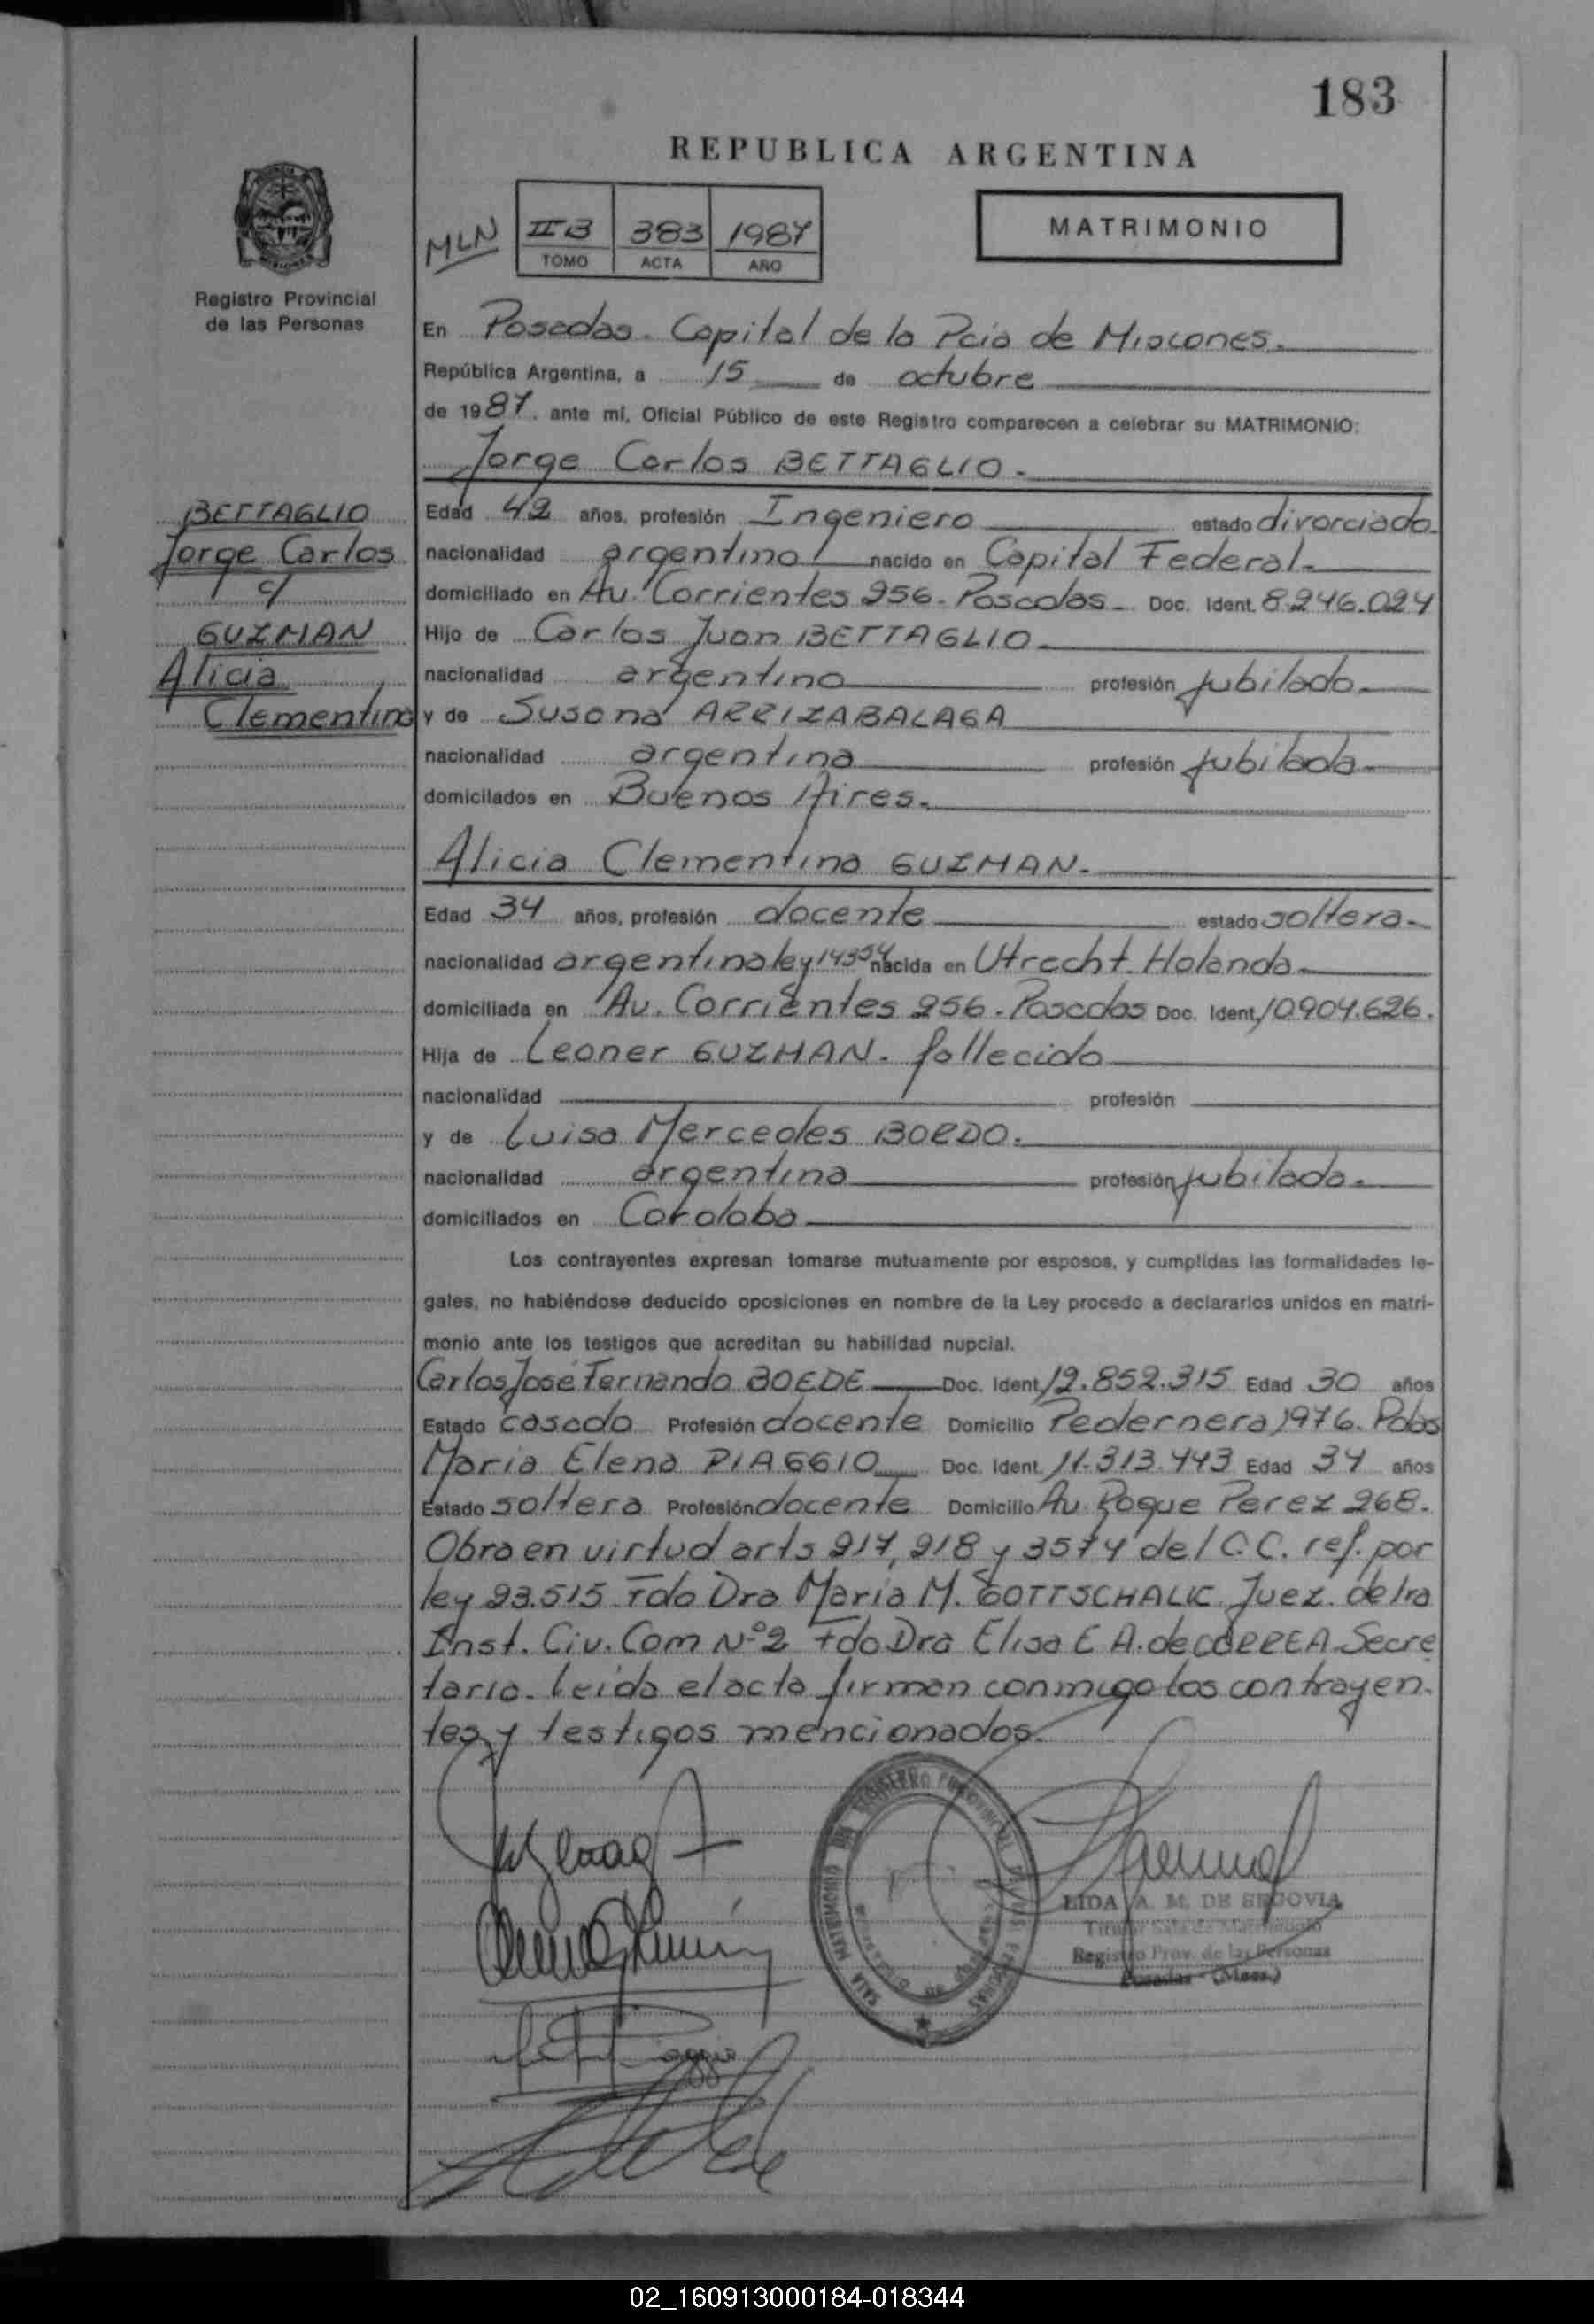 183
REPUBLICA ARGENTINA
MLN
II B 383 1987
TOMO ACTA AÑO
MATRIMONIO
Registro Provincial
de las Personas
En Posadas. Capital de la Pcia de Misiones.
República Argentina, a 15 de octubre
de 1987. ante mí, Oficial Público de este Registro comparecen a celebrar su MATRIMONIO:
Jorge Carlos BETTAGLIO.
BETTAGLIO
Jorge Carlos
c/
GUZMAN
Alicia
Clementina
Edad 42 años, profesión Ingeniero estado divorciado.
nacionalidad argentino nacido en Capital Federal.
domiciliado en Av. Corrientes 256. Posadas. Doc. Ident. 8.246.024
Hijo de Carlos Juan BETTAGLIO.
nacionalidad argentino profesión jubilado.
y de Susana ARRIZABALAGA
nacionalidad argentina profesión jubilada.
domicilados en Buenos Aires.
Alicia Clementina GUZMAN.
Edad 34 años, profesión docente estado soltera.
nacionalidad argentina ley 14354 nacida en Utrecht. Holanda.
domiciliada en Av. Corrientes 256. Posadas Doc. Ident. 10.904.626.
Hija de Leoner GUZMAN. fallecido
nacionalidad profesión
y de Luisa Mercedes BORDO.
nacionalidad argentina profesión jubilada.
domiciliados en Cordoba
Los contrayentes expresan tomarse mutuamente por esposos, y cumplidas las formalidades le-
gales, no habiéndose deducido oposiciones en nombre de la Ley procedo a declararlos unidos en matri-
monio ante los testigos que acreditan su habilidad nupcial.
Carlos José Fernando BOEDE Doc. Ident. 12.852.315 Edad 30 años
Estado casado Profesión docente Domicilio Pedernera 1976. Pdas
Maria Elena PIAGGIO Doc. Ident. 11.313.443 Edad 34 años
Estado soltera Profesión docente Domicilio Av. Roque Perez 268.
Obra en virtud arts 217, 218 y 3574 del C.C. ref. por
ley 23.515. Fdo Dra Maria M. GOTTSCHALK. Juez. de 1ra
Inst. Civ. Com Nº 2 Fdo Dra Elisa E A. de CORREA. Secre
taria. leida el acta firman conmigo los contrayen.
tes y testigos mencionados.
LIDA A. M. DE SEGOVIA
Titular Sala de Matrimonio
Registro Prov. de las Personas
Posadas - (Mnes.)
02_160913000184-018344